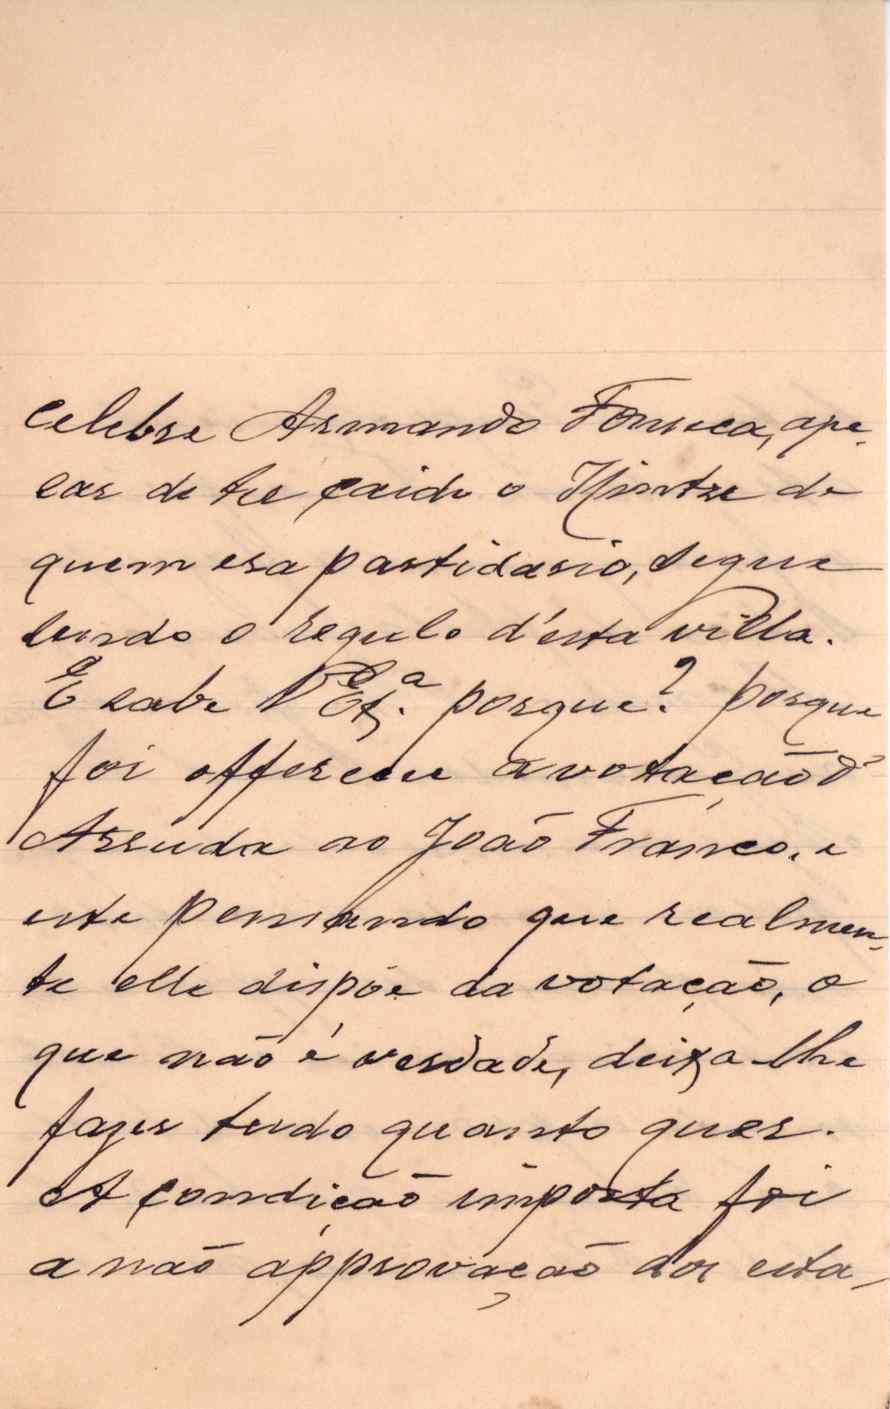 celebre Armando Fonseca, ape-
sar de ter caido o Hintze de
quem era partidario, segue
sendo o regulo d'esta villa.
E sabe V. Ex.ª porque? porque
foi offerecer a votação d'
Arruda ao João Franco, e
este pensando que realmen-
te elle dispõe da votação, o
que não é verdade, deixa-lhe
fazer tudo quanto quer.
A condição imposta foi
a não approvação dos esta-